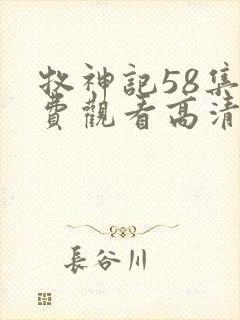 牧神記58集
費觀看高清
長谷川